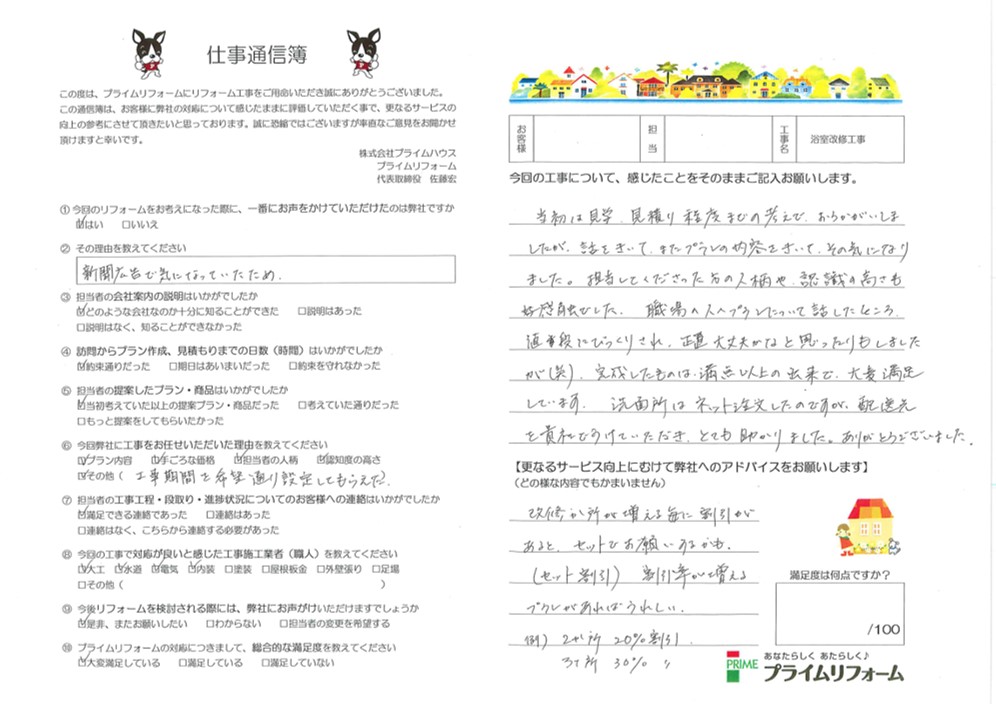 仕事通信簿
この度は、プライムリフォームにリフォーム工事をご用命いただき誠にありがとうございました。
この通信簿は、お客様に弊社の対応について感じたままに評価していただく事で、更なるサービスの
向上の参考にさせて頂きたいと思っております。誠に恐縮ではございますが率直なご意見をお聞かせ
頂けますと幸いです。
株式会社プライムハウス
プライムリフォーム
代表取締役 佐藤宏
① 今回のリフォームをお考えになった際に、一番にお声をかけていただけたのは弊社ですか
☑はい □いいえ
② その理由を教えてください
新聞広告で気になっていたため.
③ 担当者の会社案内の説明はいかがでしたか
☑どのような会社なのか十分に知ることができた □説明はあった
□説明はなく、知ることができなかった
④ 訪問からプラン作成、見積もりまでの日数（時間）はいかがでしたか
☑約束通りだった □期日はあいまいだった □約束を守れなかった
⑤ 担当者の提案したプラン・商品はいかがでしたか
☑当初考えていた以上の提案プラン・商品だった □考えていた通りだった
□もっと提案をしてもらいたかった
⑥ 今回弊社に工事をお任せいただいた理由を教えてください
☑プラン内容 ☑手ごろな価格 ☑担当者の人柄 ☑認知度の高さ
☑その他（ 工事期間を希望通り設定してもらえた.
⑦ 担当者の工事工程・段取り・進捗状況についてのお客様への連絡はいかがでしたか
☑満足できる連絡であった □連絡はあった
□連絡はなく、こちらから連絡する必要があった
⑧ 今回の工事で対応が良いと感じた工事施工業者（職人）を教えてください
☑大工 ☑水道 ☑電気 ☑内装 □塗装 □屋根板金 □外壁張り □足場
□その他（ ）
⑨ 今後リフォームを検討される際には、弊社にお声がけいただけますでしょうか
☑是非、またお願いしたい □わからない □担当者の変更を希望する
⑩ プライムリフォームの対応につきまして、総合的な満足度を教えてください
☑大変満足している □満足している □満足していない
お客様 担当 工事名 浴室改修工事
今回の工事について、感じたことをそのままご記入お願いします。
当初は見学、見積り程度までの考えで、おうかがいしま
したが、話をきいて、またプランの内容をきいて、その気になり
ました。担当してくださった方の人柄や、認識の高さも
好感触でした。 職場の人へプランについて話したところ、
値段にびっくりされ、正直大丈夫かなと思ったりもしました
が(笑)、完成したものは、満点以上の出来で、大変満足
しています。 洗面所はネット注文したのですが、配送先
を貴社でうけていただき、とても助かりました。ありがとうございました.
【更なるサービス向上にむけて弊社へのアドバイスをお願いします】
（どの様な内容でもかまいません）
改修か所が増える毎に割引が
あると、セットでお願いするかも.
(セット割引) 割引率が増える
プランがあればうれしい.
例) 2か所 20%割引.
3か所 30% 〃
満足度は何点ですか？
/100
PRIME
あなたらしく あたらしく♪
プライムリフォーム